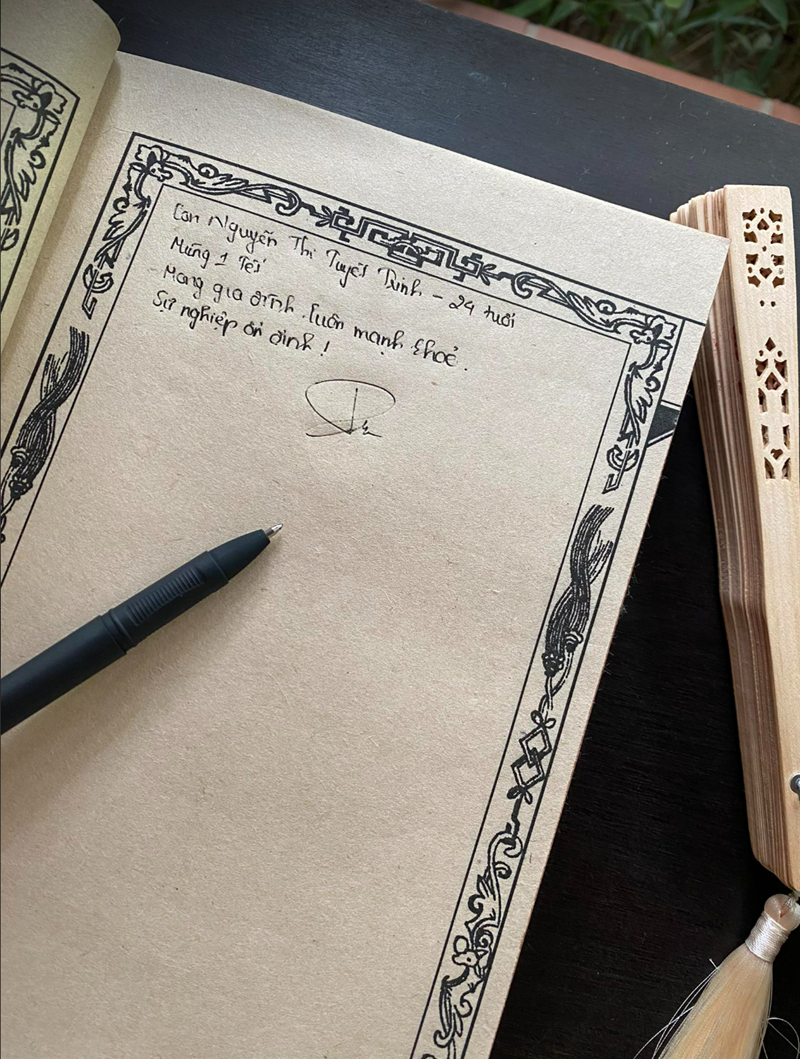 Con Nguyễn Thị Tuyết Trinh - 24 tuổi
Mùng 1 Tết
Mong gia đình luôn mạnh khoẻ.
Sự nghiệp ổn định!